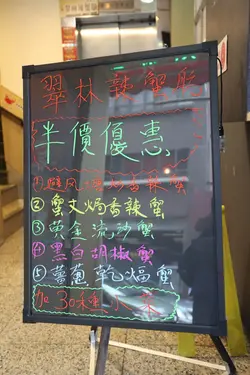 翠林辣蟹庄
半價優惠
①避風塘炒香辣蟹
②蟹丈焗香辣蟹
③黃金流沙蟹
④黑白胡椒蟹
⑤薑蔥乾煏蟹
加30種小菜